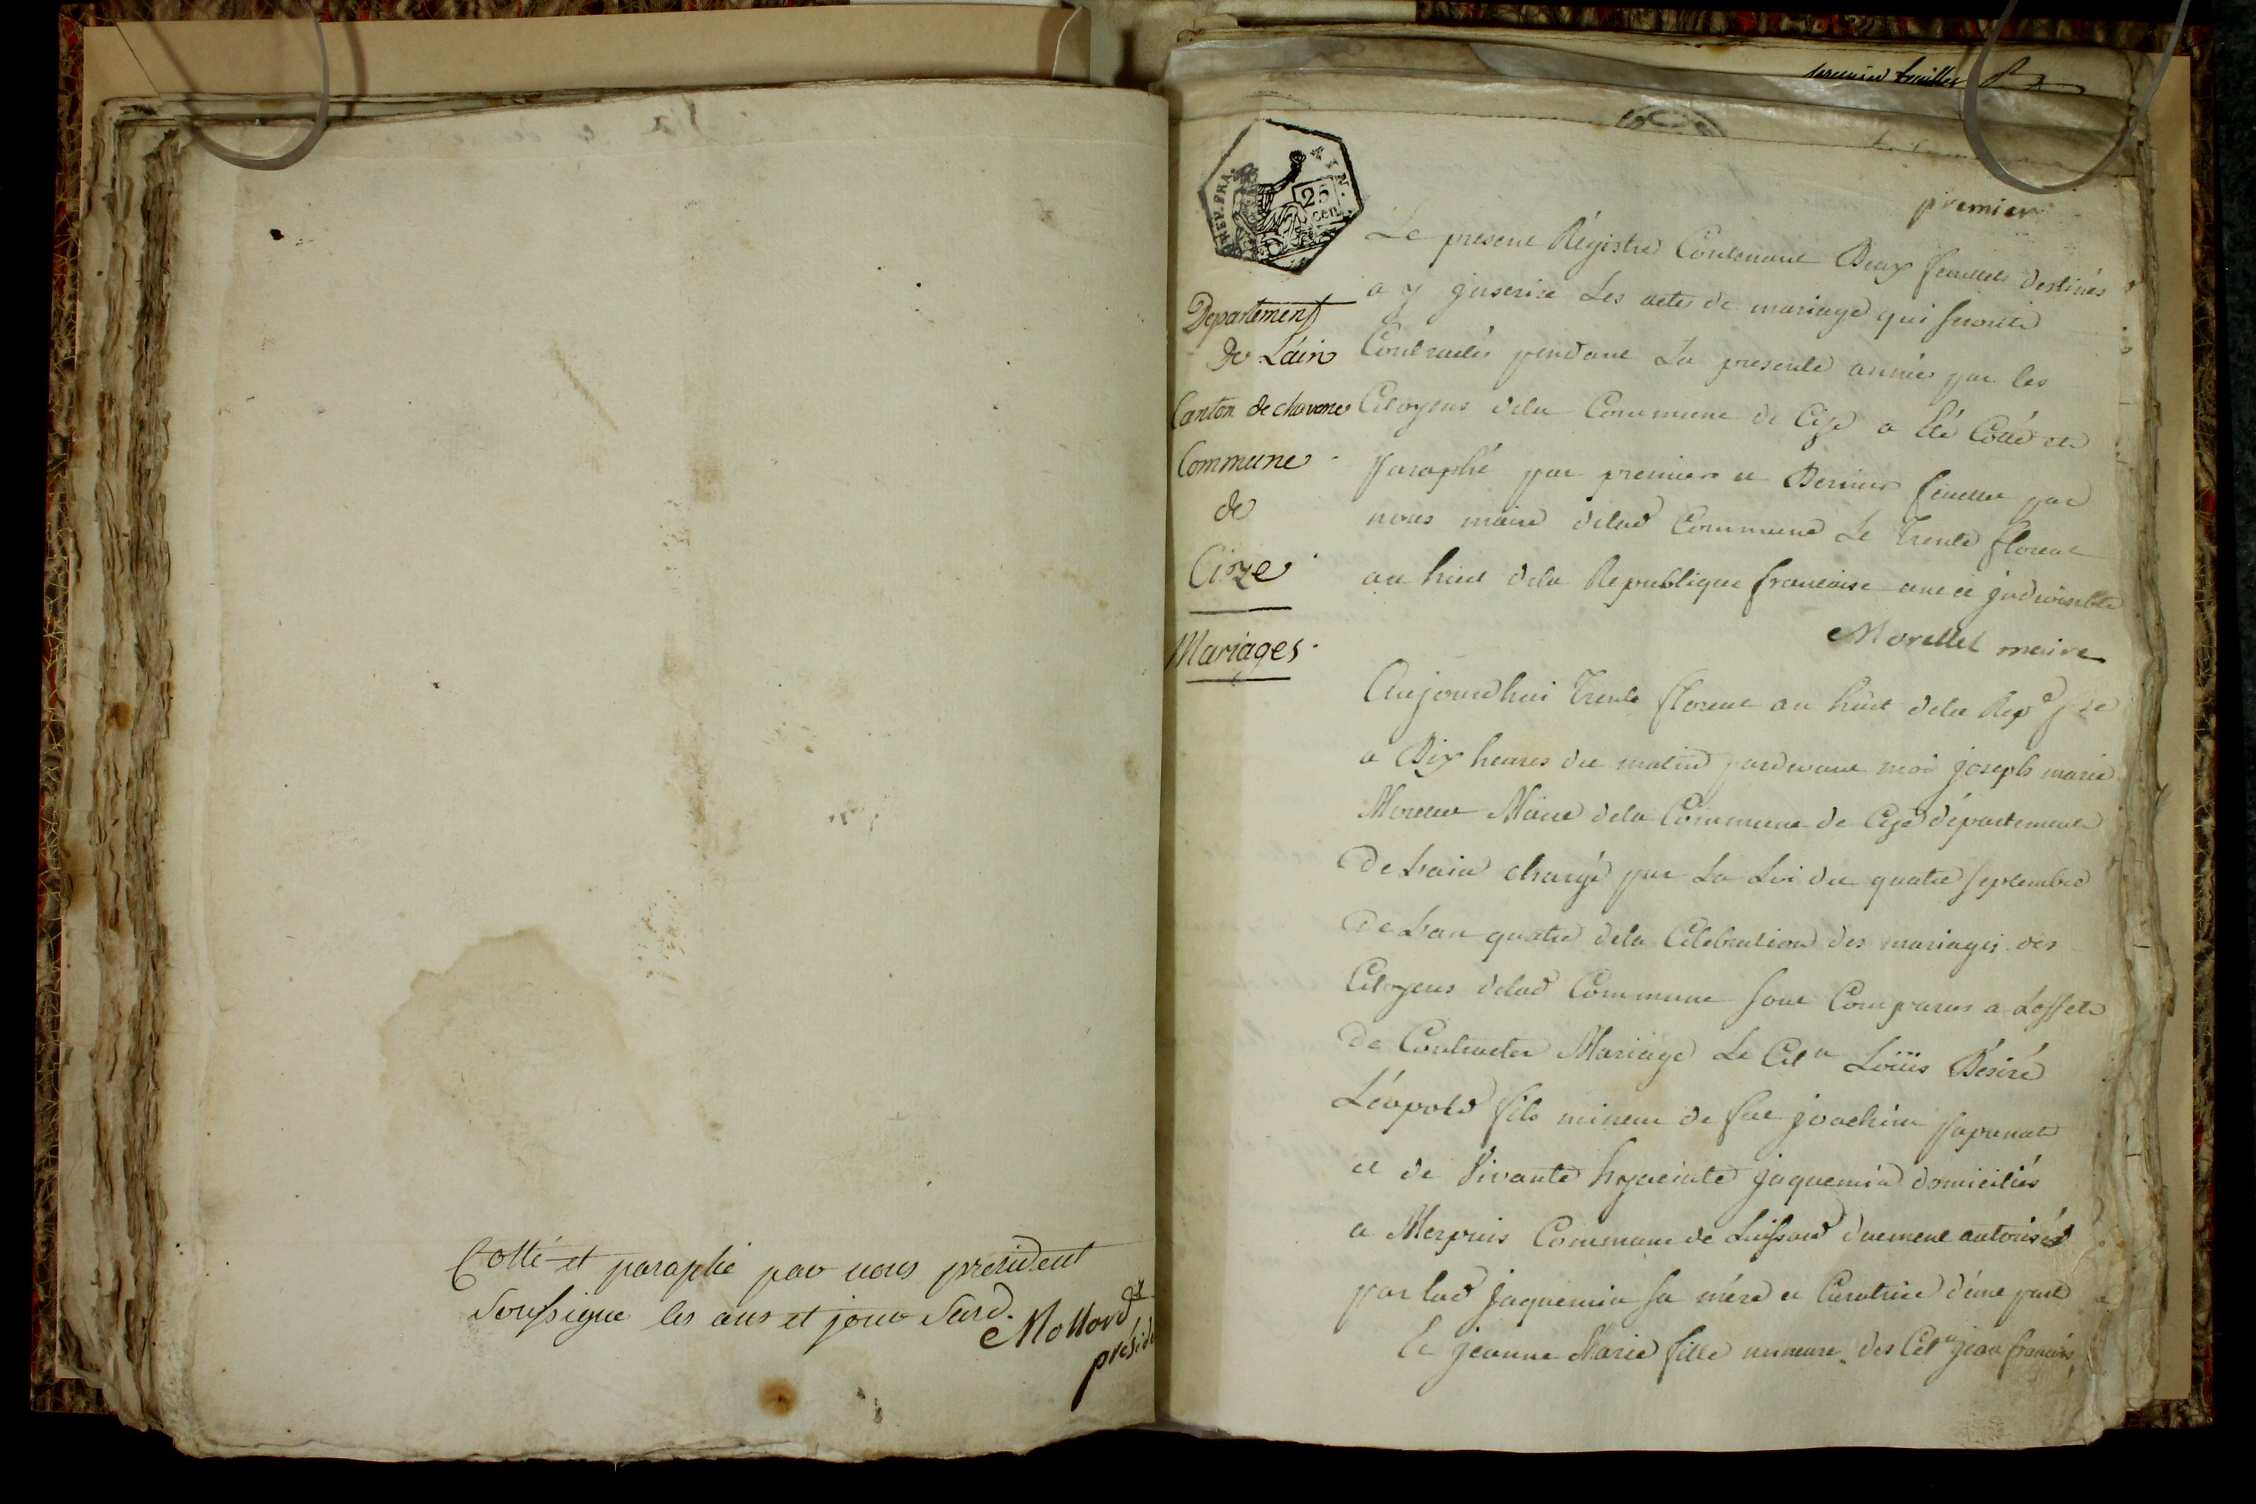 Cotté et paraphé par nous président
soussigné les ans et jour susd.
Mottard
présid
premier feuillet
REP. FRA.
AIN.
25
cen
premier
Departement
de Láin
Canton de chavane
Commune
de
Cize
Mariages.
Le present Régistre Contenant Deux feuillets destinés
a y jnscrire Les actes de mariage qui seronts
Contractés pendant La presente année par les
Citoyens dela Commune de Cize a Eté Cotté et
Paraphé par premier et Dernier feuillet par
nous maire delad Commune Le Trente floreal
an huit dela Republique francaise une et jndivisible
Morellet maire
Aujourdhui Trente floreal an huit dela Repe fse
a Dix heures du matin pardevant moi joseph marie
Morellet Maire dela Commune de Cize département
De Lain chargé par La Loi du quatre septembre
De Lan quatre dela Célebration des mariages des
Citoyens delad Commune sont Comparus a Leffet
De Contracter Mariage Le Citn Loüis Désiré
Léopold fils mineur de feu joachim Papanat
et de Vivante hyacinte jaquemin domiciliés
a Merpuis Commune de duement autorisé
par lad jaquemin sa mére et Curatrice d'une part
Et jeanne Marie fille mineure des Citn jean francois